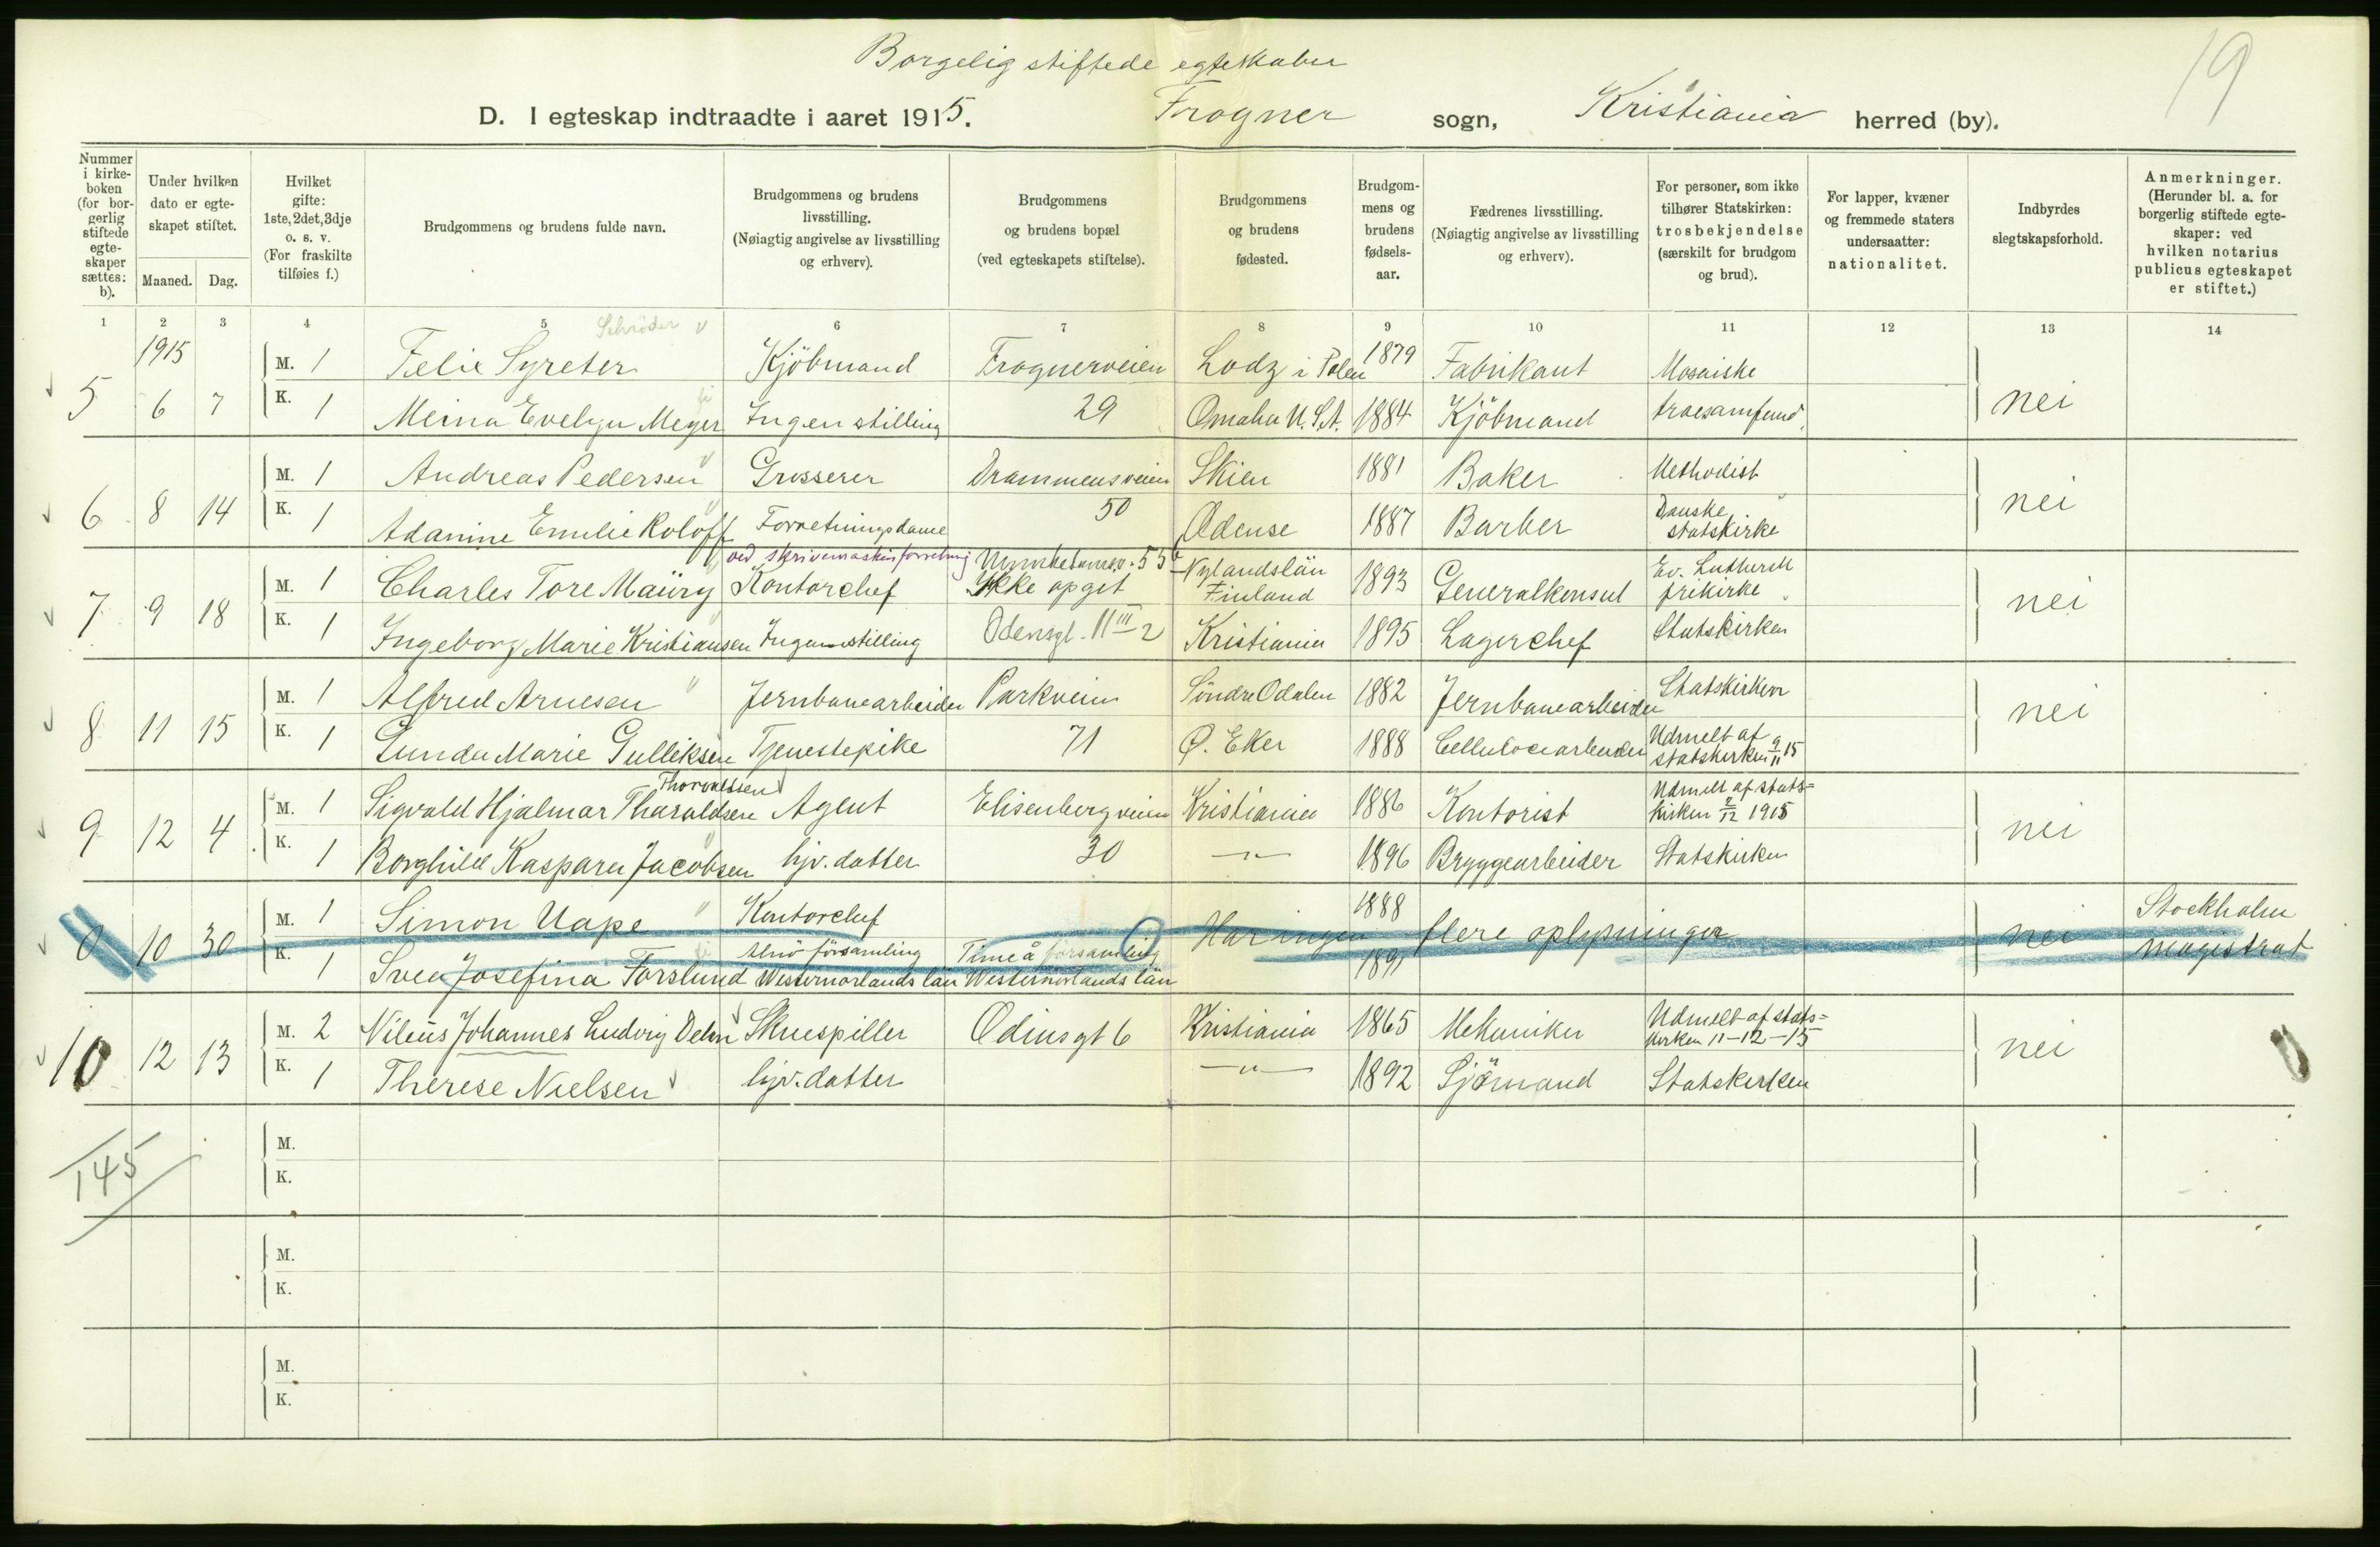 Borgelig stiftede egteskaber
19
D. I egteskap indtraadte i aaret 1915. Frogner sogn, Kristiania herred (by).
Nummer i kirke-boken (for bor-gerlig stiftede egte-skaper sættes: b).
Under hvilken dato er egte-skapet stiftet.
Maaned. Dag.
Hvilket gifte: 1ste, 2det, 3dje o. s. v. (For fraskilte tilføies f.)
Brudgommens og brudens fulde navn.
Brudgommens og brudens livsstilling. (Nøiagtig angivelse av livsstilling og erhverv).
Brudgommens og brudens bopæl (ved egteskapets stiftelse).
Brudgommens og brudens fødested.
Brudgom-mens og brudens fødsels-aar.
Fædrenes livsstilling. (Nøiagtig angivelse av livsstilling og erhverv).
For personer, som ikke tilhører Statskirken: trosbekjendelse (særskilt for brudgom og brud).
For lapper, kvæner og fremmede staters undersaatter: nationalitet.
Indbyrdes slegtskapsforhold.
Anmerkninger. (Herunder bl. a. for borgerlig stiftede egte-skaper: ved hvilken notarius publicus egteskapet er stiftet.)
1 2 3 4 5 6 7 8 9 10 11 12 13 14
Schröder
1915 M. 1 Felix Syreter Kjöbmand Frognerveien Lodz i Polen 1879 Fabrikant Mosaiske
5 6 7 K. 1 Meina Evelyn Meyer Ingen stilling 29 Omaha U.S.A. 1884 Kjöbmand troessamfund. nei
M. 1 Andreas Pedersen Grosserer Drammensveien Skien 1881 Baker Methodist
6 8 14 K. 1 Adamine Emilie Koloff Forretningsdame 50 Odense 1887 Barber Danske statskirke nei
ved skrivemaskinforretning
M. 1 Charles Tore Maüry Kontorchef Ikke opget Nylandslän Finland 1893 Generalkonsul Ev. Luthersk frikirke
7 9 18 K. 1 Ingeborg Marie Kristiansen Ingen stilling Odensgt. 11 III 2 Kristiania 1895 Lagerchef Statskirken nei
M. 1 Alfred Arnesen Jernbanearbeider Parkveien Söndre Odalen 1882 Jernbanearbeider Statskirken
8 11 15 K. 1 Gunda Marie Gulliksen Tjenestepike 71 Ø. Eker 1888 Cellulocearbeider Udmelt af statskirken 9/11 15 nei
Thorvaldsen
M. 1 Sigvald Hjalmar Tharaldsen Agent Elisenbergveien Kristiania 1886 Kontorist Udmelt af stats=kirken 2/12 1915
9 12 4 K. 1 Borghild Kaspara Jacobsen hjv. datter 30 —"— 1896 Bryggearbeider Statskirken nei
M. 1 Simon Uape Kontorchef 1888 Stockholm
0 10 30 K. 1 Svea Josefina Forslund Alnö församling Westernorlands län Timeå församling Westernorlands län Har ingen flere oplysninger 1891 nei magistrat
M. 2 Vilius Johannes Ludvig Dehn Skuespiller Odinsgt 6 Kristiania 1865 Mekaniker Udmelt af stats=kirken 11-12-15
10 12 13 K. 1 Therese Nielsen hjv. datter —"— 1892 Sjömand Statskirken nei
145
M.
K.
M.
K.
M.
K.